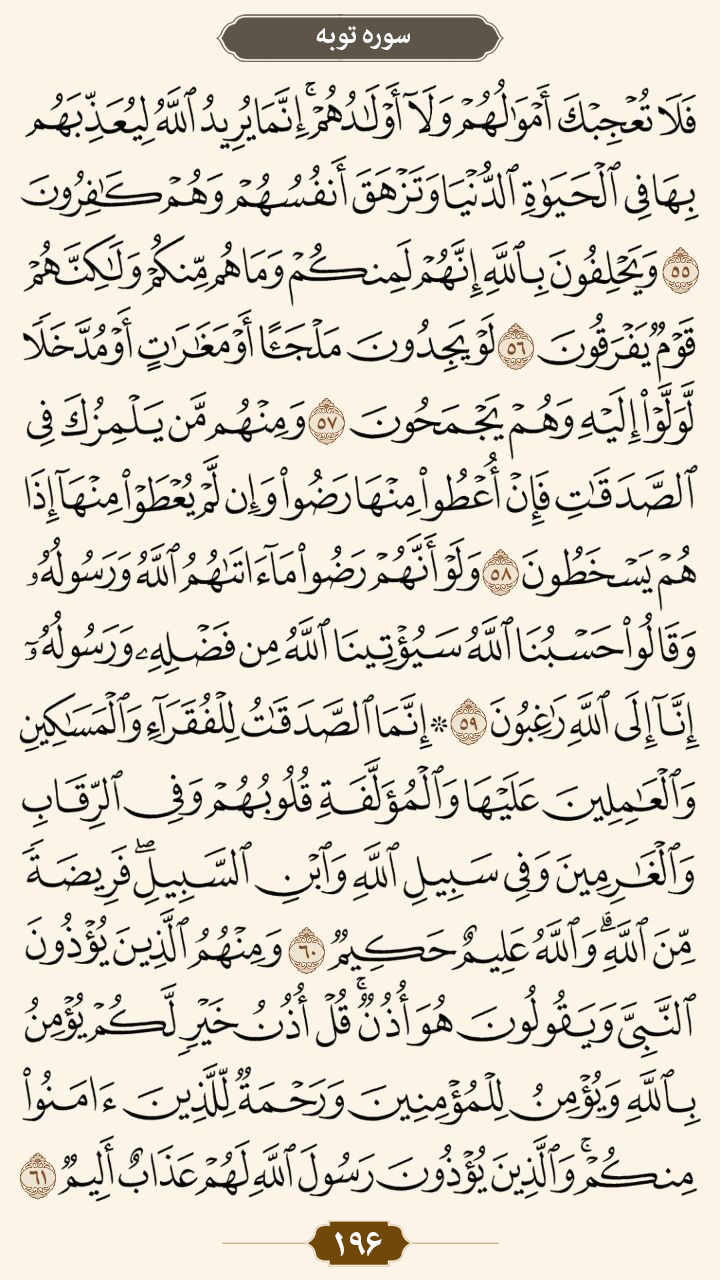 سوره توبه
فَلَا تُعْجِبْكَ أَمْوَٰلُهُمْ وَلَآ أَوْلَٰدُهُمْ ۚ إِنَّمَا يُرِيدُ ٱللَّهُ لِيُعَذِّبَهُم
بِهَا فِى ٱلْحَيَوٰةِ ٱلدُّنْيَا وَتَزْهَقَ أَنفُسُهُمْ وَهُمْ كَٰفِرُونَ
۵۵ وَيَحْلِفُونَ بِٱللَّهِ إِنَّهُمْ لَمِنكُمْ وَمَا هُم مِّنكُمْ وَلَٰكِنَّهُمْ
قَوْمٌ يَفْرَقُونَ ۵۶ لَوْ يَجِدُونَ مَلْجَـًٔا أَوْ مَغَٰرَٰتٍ أَوْ مُدَّخَلًا
لَّوَلَّوْا۟ إِلَيْهِ وَهُمْ يَجْمَحُونَ ۵۷ وَمِنْهُم مَّن يَلْمِزُكَ فِى
ٱلصَّدَقَٰتِ فَإِنْ أُعْطُوا۟ مِنْهَا رَضُوا۟ وَإِن لَّمْ يُعْطَوْا۟ مِنْهَآ إِذَا
هُمْ يَسْخَطُونَ ۵۸ وَلَوْ أَنَّهُمْ رَضُوا۟ مَآ ءَاتَىٰهُمُ ٱللَّهُ وَرَسُولُهُۥ
وَقَالُوا۟ حَسْبُنَا ٱللَّهُ سَيُؤْتِينَا ٱللَّهُ مِن فَضْلِهِۦ وَرَسُولُهُۥٓ
إِنَّآ إِلَى ٱللَّهِ رَٰغِبُونَ ۵۹ * إِنَّمَا ٱلصَّدَقَٰتُ لِلْفُقَرَآءِ وَٱلْمَسَٰكِينِ
وَٱلْعَٰمِلِينَ عَلَيْهَا وَٱلْمُؤَلَّفَةِ قُلُوبُهُمْ وَفِى ٱلرِّقَابِ
وَٱلْغَٰرِمِينَ وَفِى سَبِيلِ ٱللَّهِ وَٱبْنِ ٱلسَّبِيلِ ۖ فَرِيضَةً
مِّنَ ٱللَّهِ ۗ وَٱللَّهُ عَلِيمٌ حَكِيمٌ ۶۰ وَمِنْهُمُ ٱلَّذِينَ يُؤْذُونَ
ٱلنَّبِىَّ وَيَقُولُونَ هُوَ أُذُنٌ ۚ قُلْ أُذُنُ خَيْرٍ لَّكُمْ يُؤْمِنُ
بِٱللَّهِ وَيُؤْمِنُ لِلْمُؤْمِنِينَ وَرَحْمَةٌ لِّلَّذِينَ ءَامَنُوا۟
مِنكُمْ ۚ وَٱلَّذِينَ يُؤْذُونَ رَسُولَ ٱللَّهِ لَهُمْ عَذَابٌ أَلِيمٌ ۶۱
۱۹۶